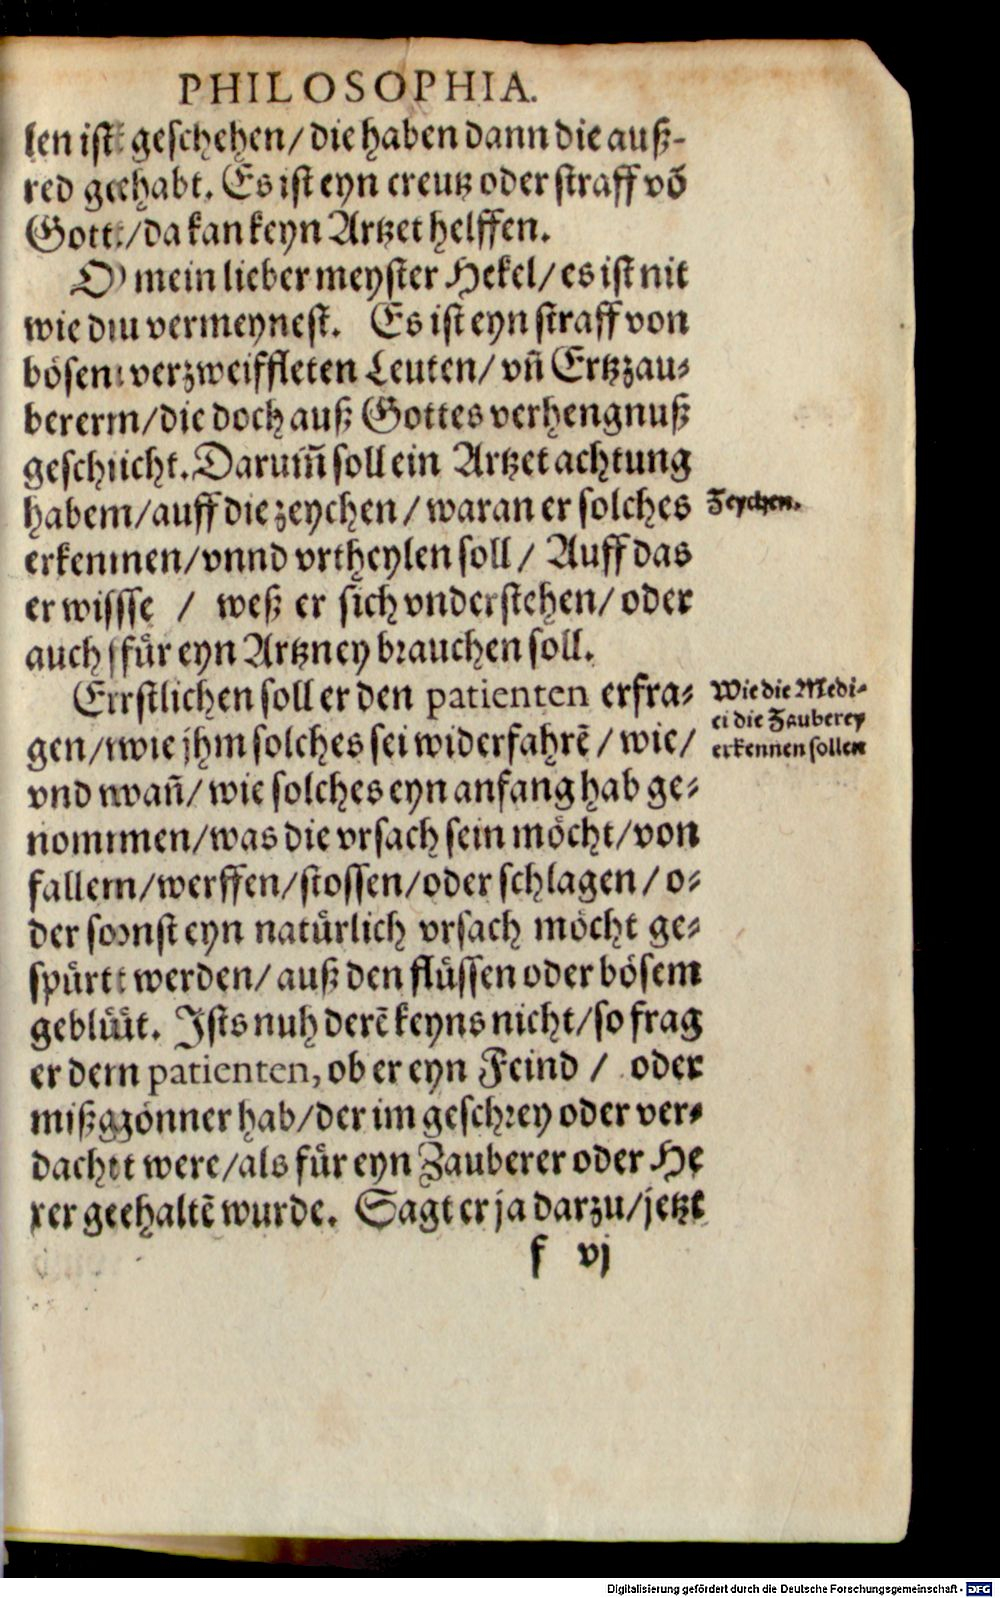 PHILOSOPHIA.
len ist geschehen/die haben dann die auß-
red gehabt. Es ist eyn creutz oder straff võ
Gott/da kan keyn Artzet helffen.
O mein lieber meyster Hekel/es ist nit
wie du vermeynest. Es ist eyn straff von
bösen verzweiffleten Leuten/vñ Ertzzau-
berern/die doch auß Gottes verhengnuß
geschicht. Darum̃ soll ein Artzet achtung
haben/auff die zeychen/waran er solches
Zeychen.
erkennen/vnnd vrtheylen soll/ Auff das
er wisse / weß er sich vnderstehen/oder
auch für eyn Artzney brauchen soll.
Erstlichen soll er den patienten erfra-
Wie die Medi-
ci die Zauberey
erkennen sollen
gen/wie jhm solches sei widerfahrẽ/wie/
vnd wañ/wie solches eyn anfang hab ge-
nommen/was die vrsach sein möcht/von
fallen/werffen/stossen/oder schlagen/o-
der sonst eyn natürlich vrsach möcht ge-
spürt werden/auß den flüssen oder bösem
geblüt. Jsts nuh derẽ keyns nicht/so frag
er den patienten, ob er eyn Feind / oder
mißgönner hab/der im geschrey oder ver-
dacht were/als für eyn Zauberer oder He
xer gehaltẽ wurde. Sagt er ja darzu/jetzt
f vj
Digitalisierung gefördert durch die Deutsche Forschungsgemeinschaft - DFG